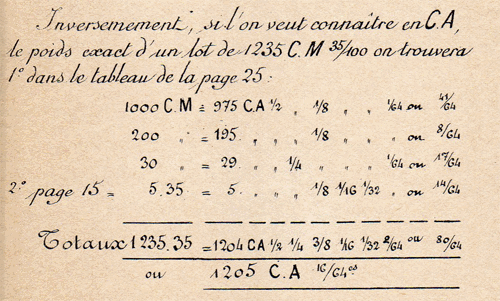 Inversemement, si l'on veut connaître en C.A,
le poids exact d'un lot de 1235 C.M 35/100 on trouvera
1° dans le tableau de la page 25:
1000 C.M = 975 C.A 1/2 „ 1/8 „ „ 1/64 ou 41/64
200 „ = 195. „ „ 1/8 „ „ „ ou 8/64
30 „ = 29. „ 1/4 „ „ „ 1/64 ou 17/64
2° page 15 = 5.35 = 5. „ „ 1/8 1/16 1/32 „ ou 14/64
Totaux 1235.35 = 1204 CA 1/2 1/4 3/8 1/16 1/32 2/64 ou 80/64
ou 1205 C.A 16/64es